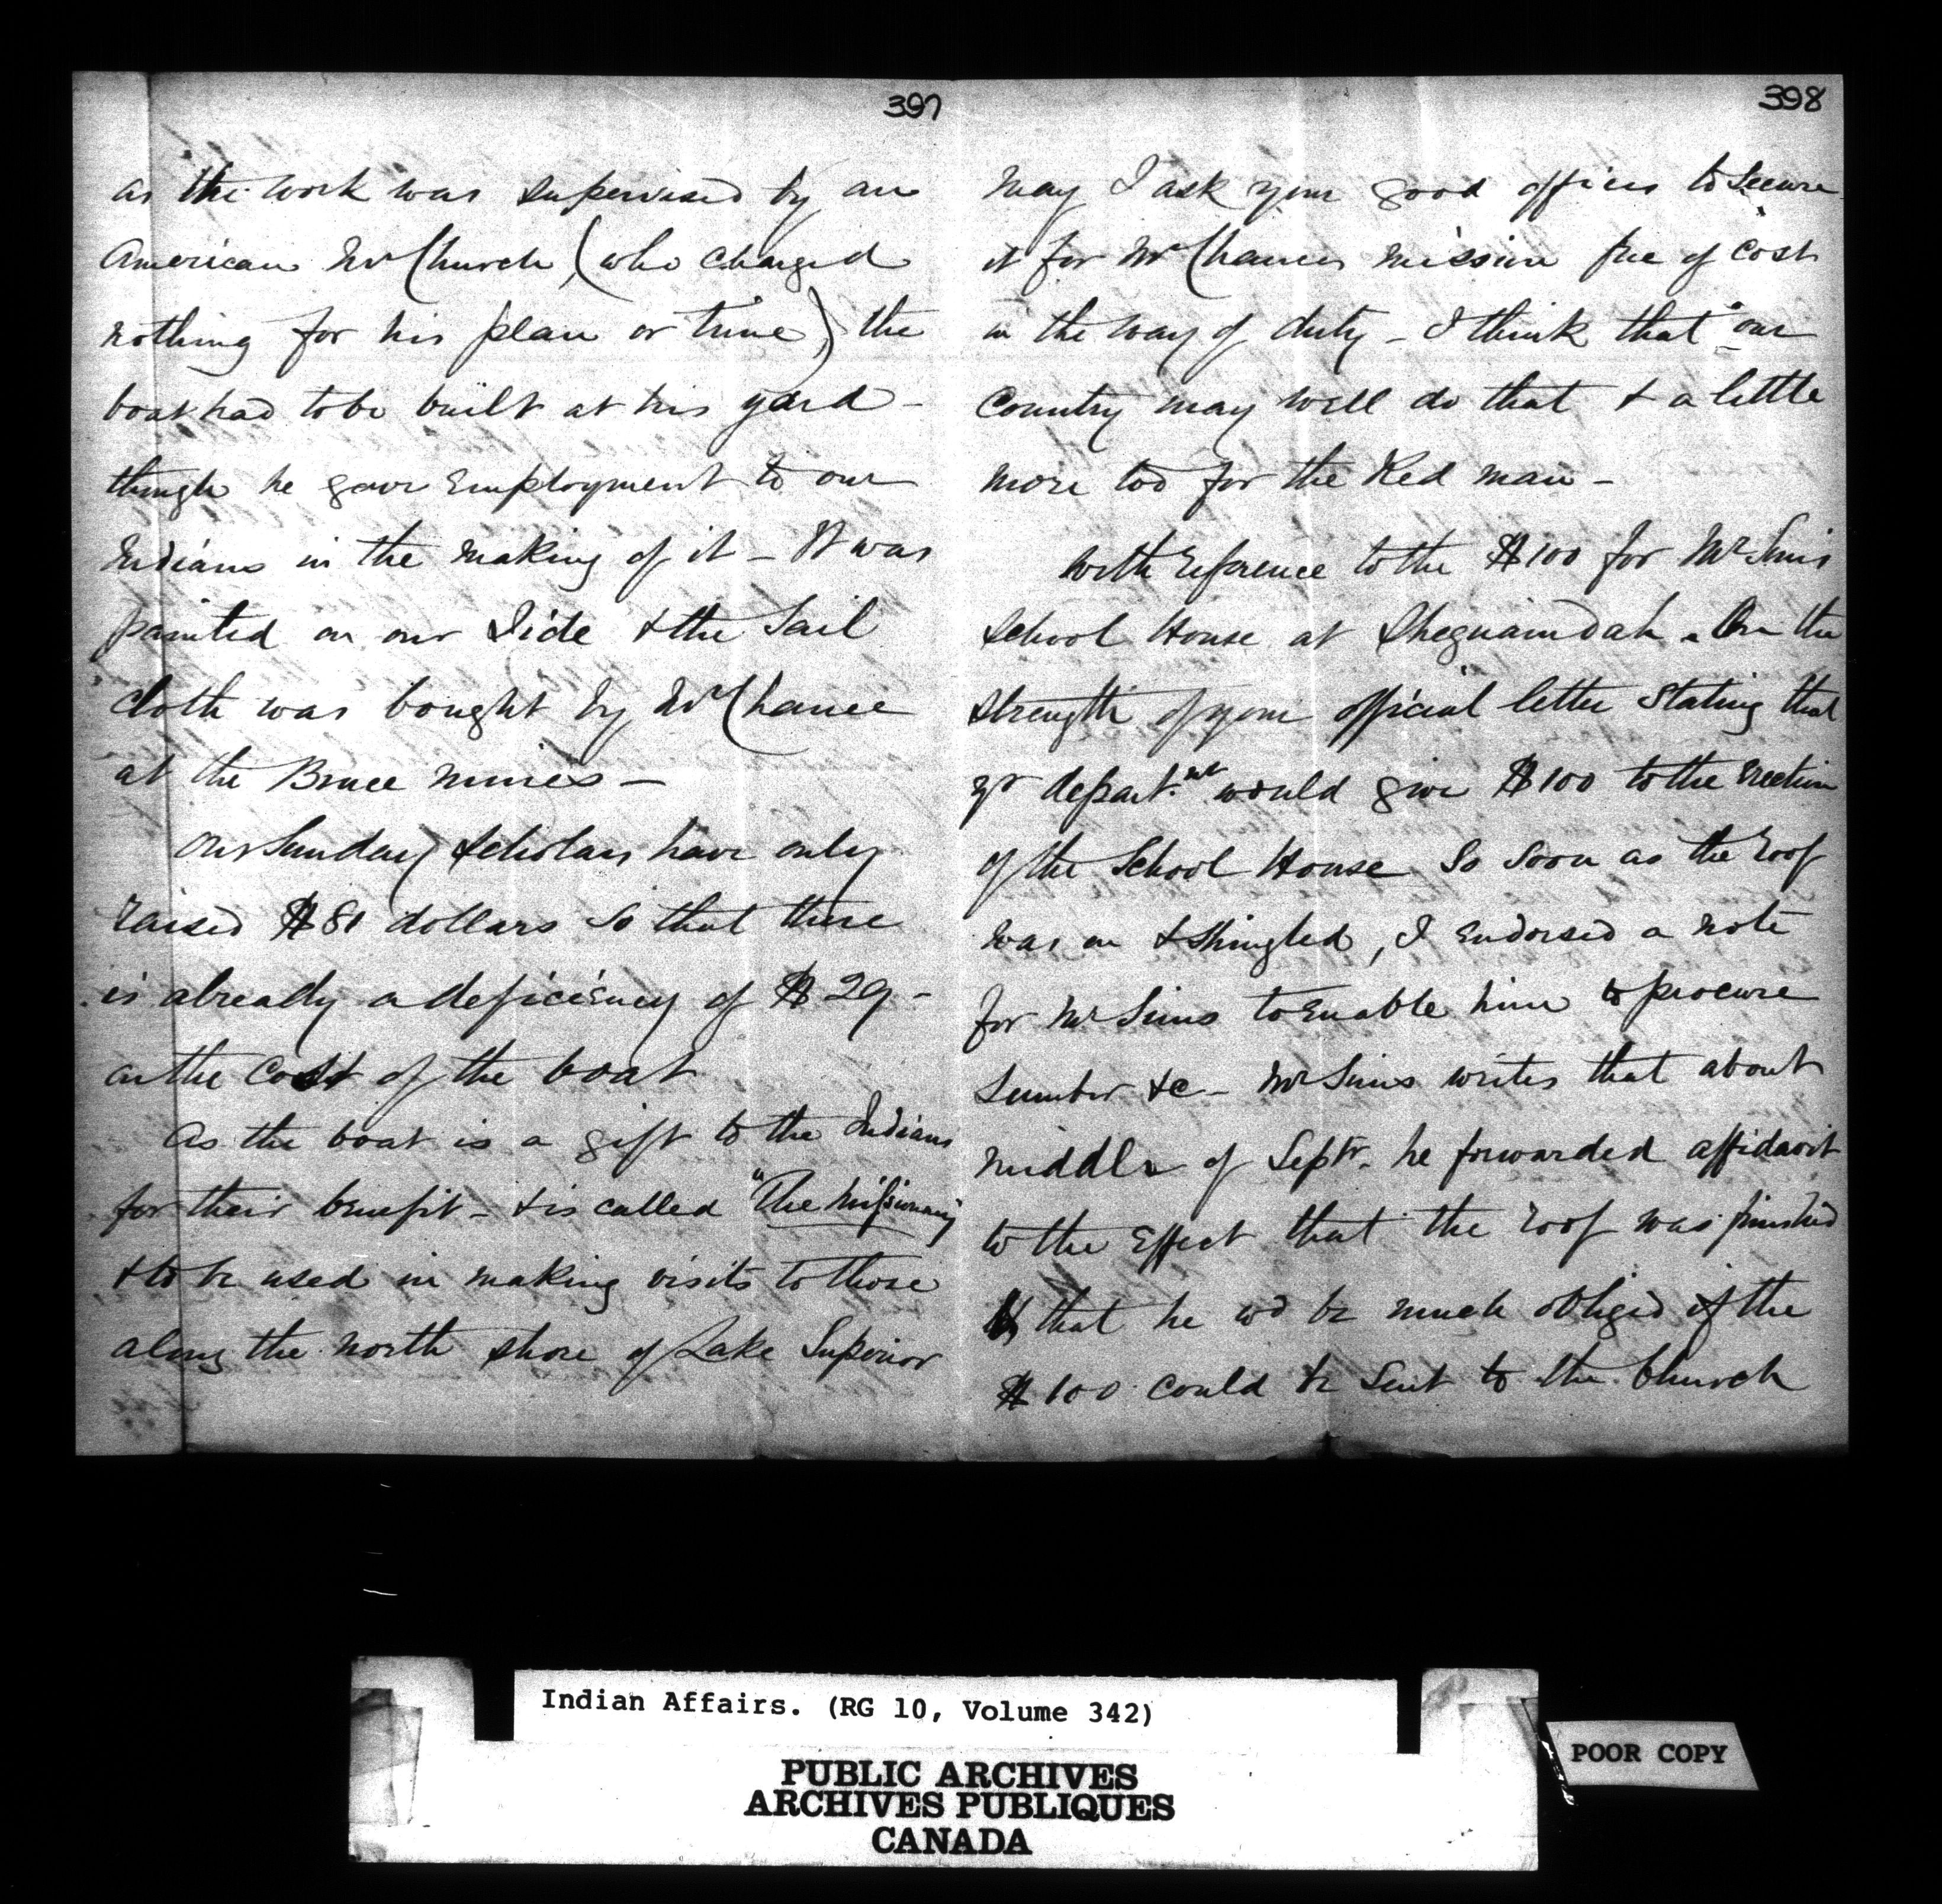 397
as the work was supervised by an
American Mr Church, (who charged
nothing for his plan or time) the
boat had to be built at his yard -
though he gave Employment to our
Indians in the making of it - It was
painted on our Side & the Sail
cloth was bought by Mr Chance
at the Bruce mines -
Our Sunday Scholars have only
raised $81 dollars So that there
is already a deficiency of $29 -
on the cost of the boat
As the boat is a gift to the Indians
for their benefit - & is called "The Missionary
& to be used in making visits to those
along the north shore of Lake Superior
398
May I ask your good offices to Secure
it for Mr Chances mission free of cost
in the way of duty - I think that our
Country may well do that & a little
more too for the Red man -
With reference to the $100 for Mr Sims
School House at Sheguaindah. On the
strength of your official letter Stating that
yr depart.nt would give $100 to the Erection
of the School House So Soon as the roof
was on & shingled, I Endorsed a note
for Mr Sims to Enable him to procure
Lumber &c - Mr Sims writes that about
middle of Septr. he forwarded affidavit
to the Effect that the roof was finished
& that he wd be much obliged if the
$100 could be Sent to the Church
Indian Affairs. (RG 10, Volume 342)
PUBLIC ARCHIVES
ARCHIVES PUBLIQUES
CANADA
POOR COPY